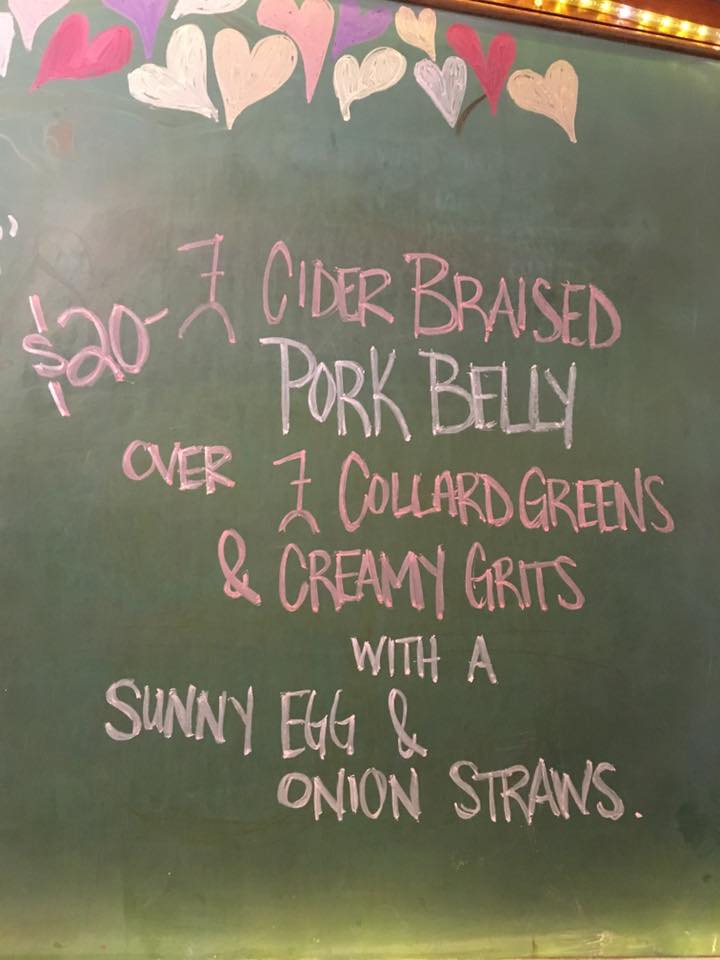 $20- 7 CIDER BRAISED
PORK BELLY
OVER 7 COLLARD GREENS
& CREAMY GRITS
WITH A
SUNNY EGG &
ONION STRAWS.